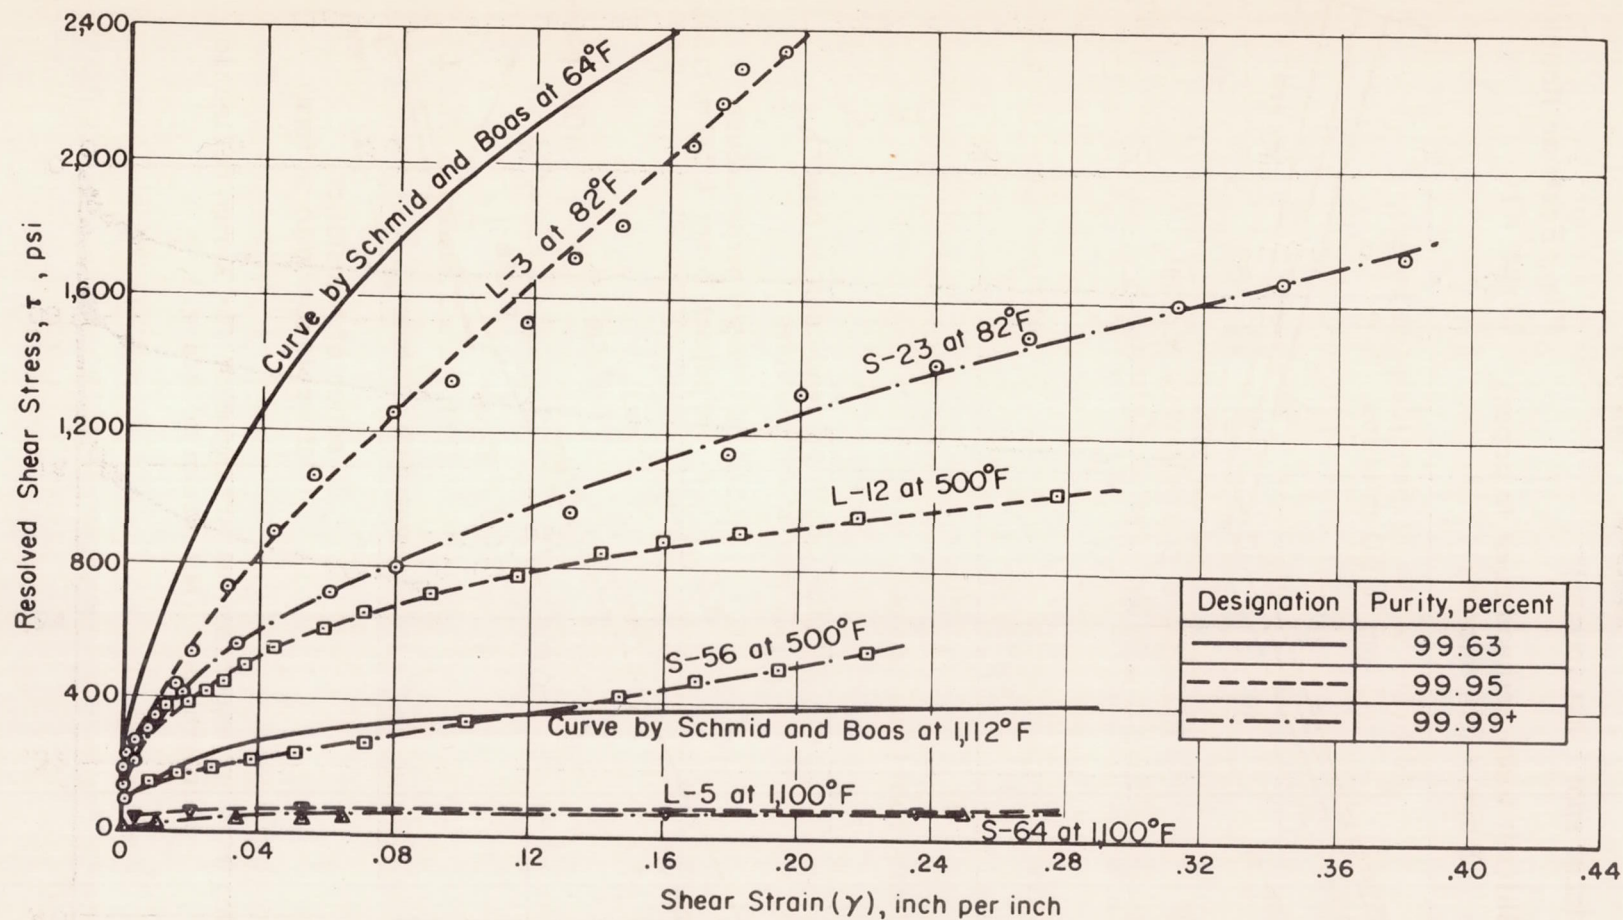 2,400
2,000
1,600
1,200
800
400
0
Resolved Shear Stress, τ, psi
Curve by Schmid and Boas at 64°F
L-3 at 82°F
S-23 at 82°F
L-12 at 500°F
S-56 at 500°F
Curve by Schmid and Boas at 1,112°F
L-5 at 1,100°F
S-64 at 1,100°F
Designation Purity, percent
99.63
99.95
99.99+
0 .04 .08 .12 .16 .20 .24 .28 .32 .36 .40 .44
Shear Strain (γ), inch per inch